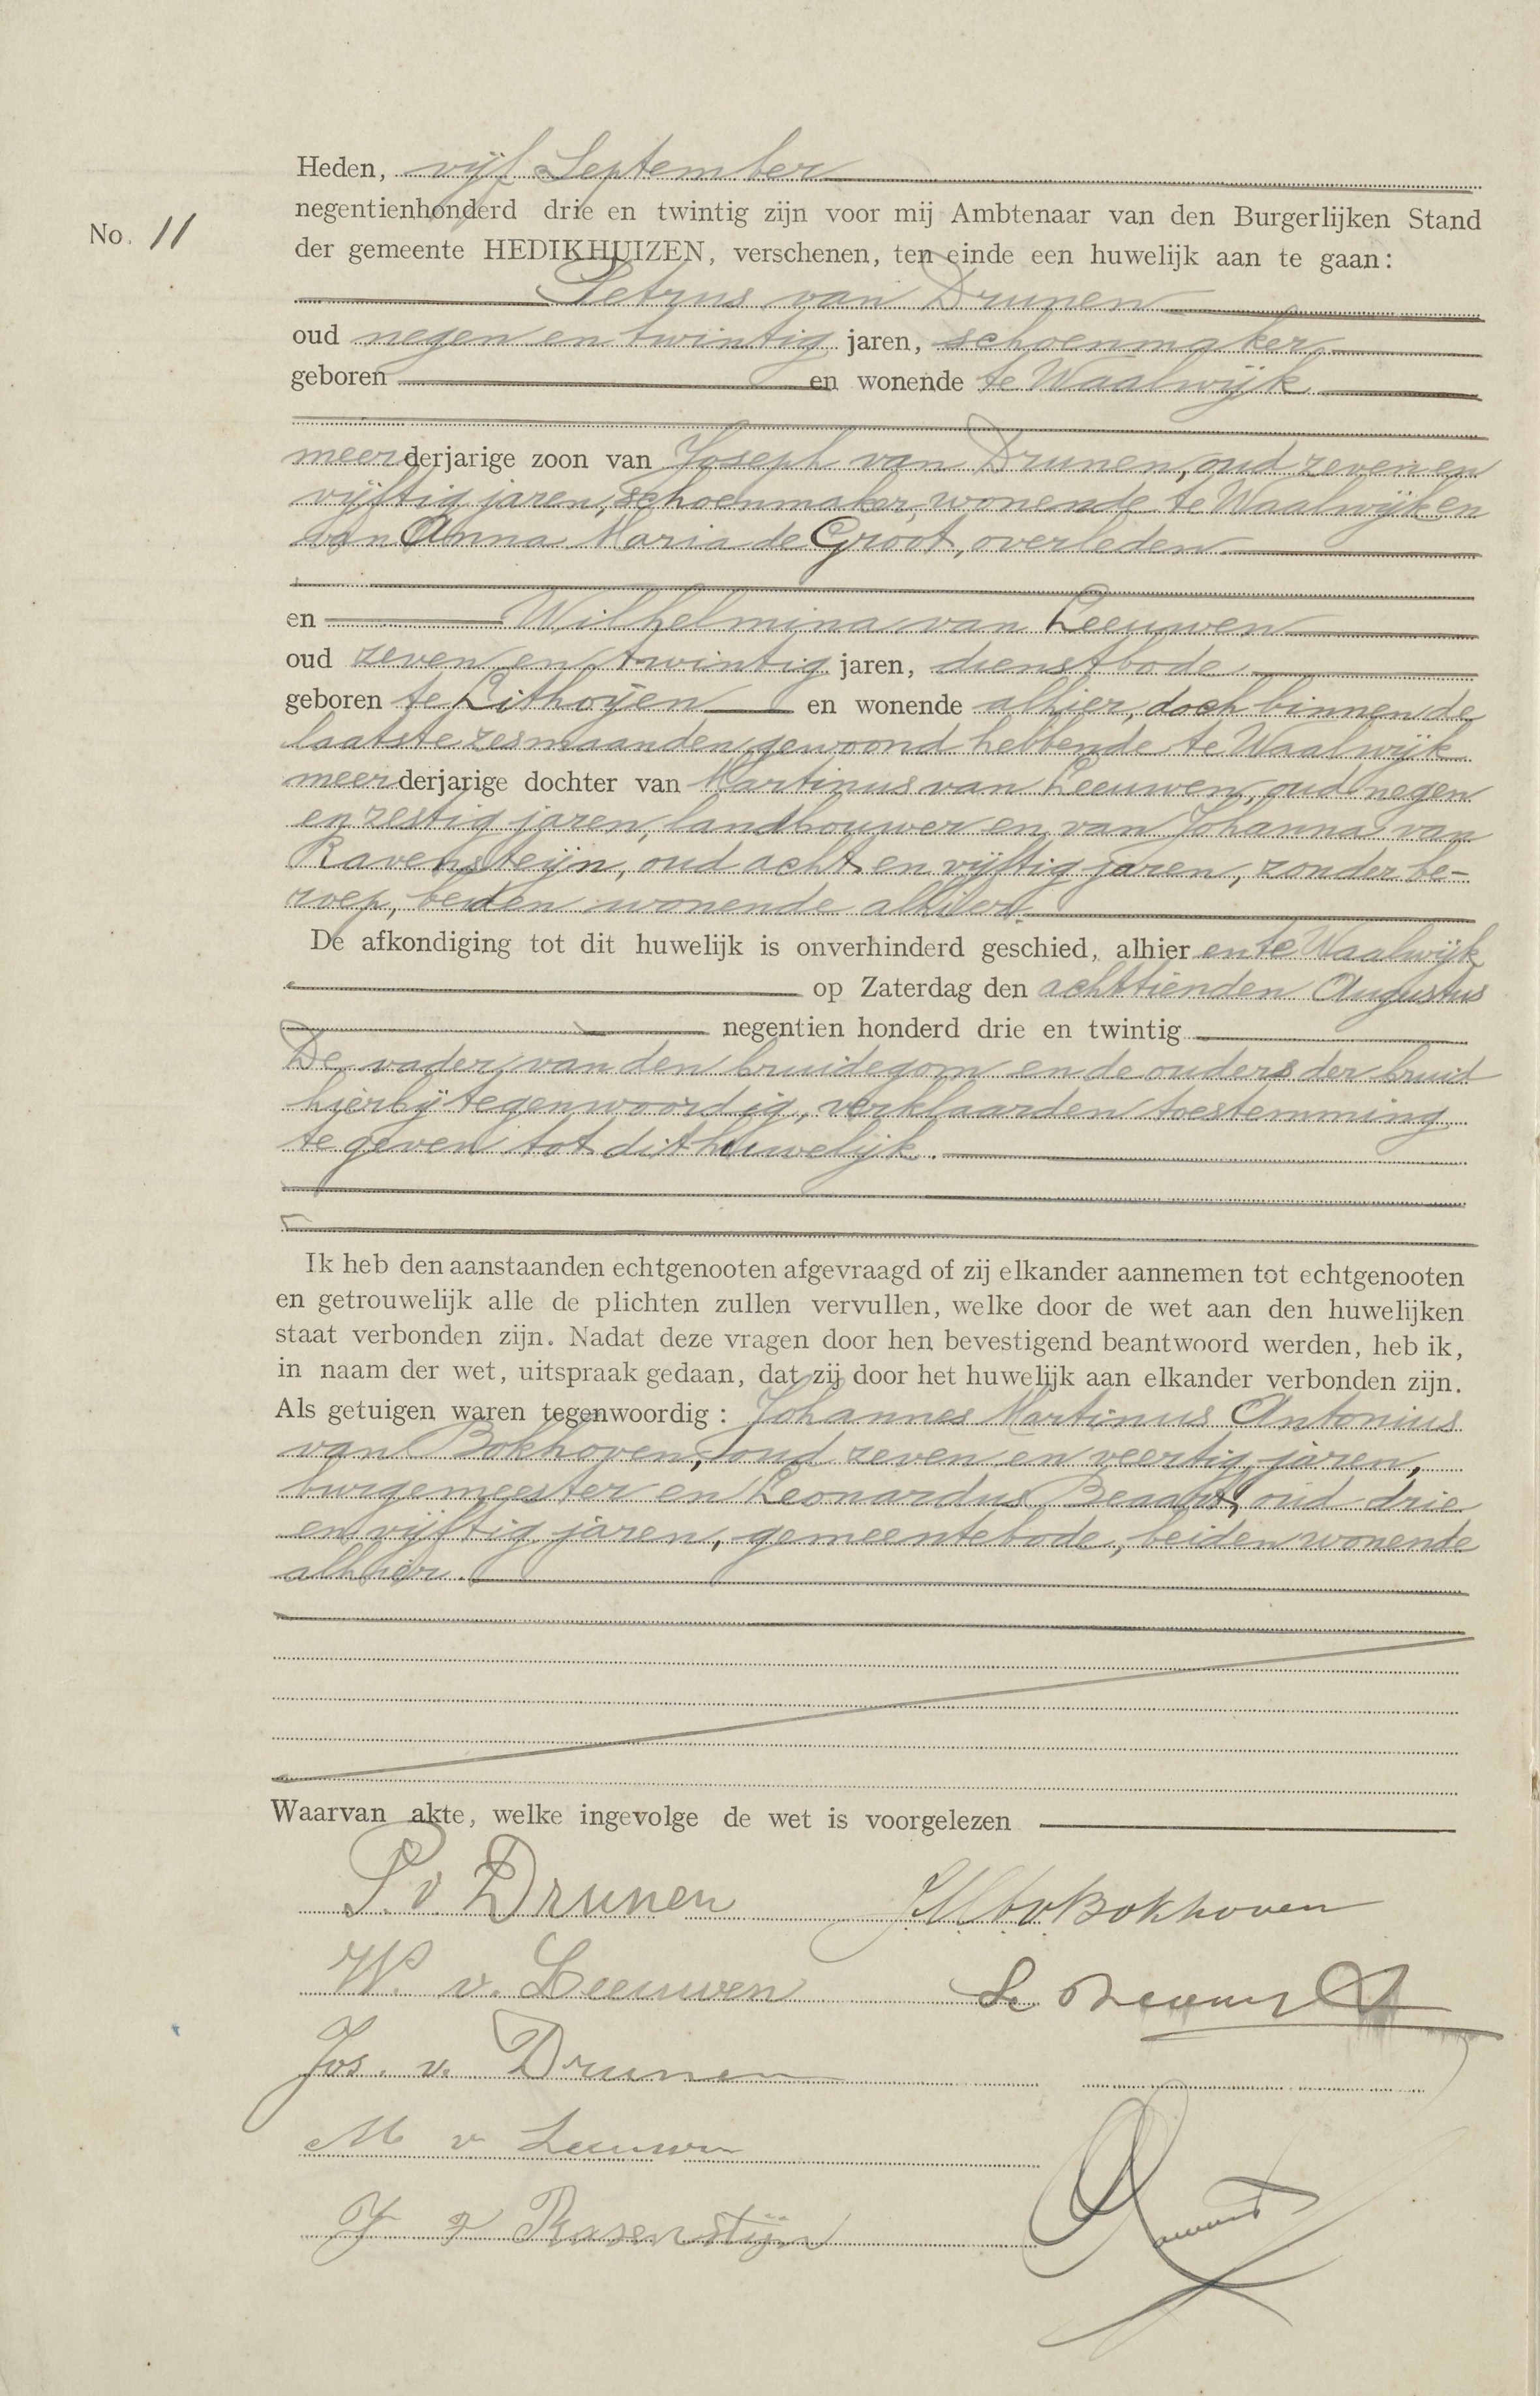 No. 11
Heden, vijf September
negentienhonderd drie en twintig zijn voor mij Ambtenaar van den Burgerlijken Stand
der gemeente HEDIKHUIZEN, verschenen, ten einde een huwelijk aan te gaan:
Petrus van Drunen
oud negen en twintig jaren, schoenmaker
geboren en wonende te Waalwijk
meerderjarige zoon van Joseph van Drunen, oud zeven en
vijftig jaren, schoenmaker, wonende te Waalwijk en
van Anna Maria de Groot, overleden
en Wilhelmina van Leeuwen
oud zeven en twintig jaren, dienstbode
geboren te Lithoijen en wonende alhier, doch binnen de
laatste zes maanden gewoond hebbende te Waalwijk
meerderjarige dochter van Martinus van Leeuwen, oud negen
en zestig jaren, landbouwer en van Johanna van
Ravensteijn, oud acht en vijftig jaren, zonder be-
roep, beiden wonende alhier.
De afkondiging tot dit huwelijk is onverhinderd geschied, alhier en te Waalwijk
op Zaterdag den achttienden Augustus
negentien honderd drie en twintig
De vader van den bruidegom en de ouders der bruid
hierbij tegenwoordig, verklaarden toestemming
te geven tot dit huwelijk.
Ik heb den aanstaanden echtgenooten afgevraagd of zij elkander aannemen tot echtgenooten
en getrouwelijk alle de plichten zullen vervullen, welke door de wet aan den huwelijken
staat verbonden zijn. Nadat deze vragen door hen bevestigend beantwoord werden, heb ik,
in naam der wet, uitspraak gedaan, dat zij door het huwelijk aan elkander verbonden zijn.
Als getuigen waren tegenwoordig: Johannes Martinus Antonius
van Bokhoven, oud zeven en veertig jaren,
burgemeester en Leonardus oud drie
en vijftig jaren, gemeentebode, beiden wonende
alhier.
Waarvan akte, welke ingevolge de wet is voorgelezen
P. v. Drunen
J.M.A.v.Bokhoven
W. v. Leeuwen
Jos. v. Drunen
M v Leeuwen
J v Ravenstijn